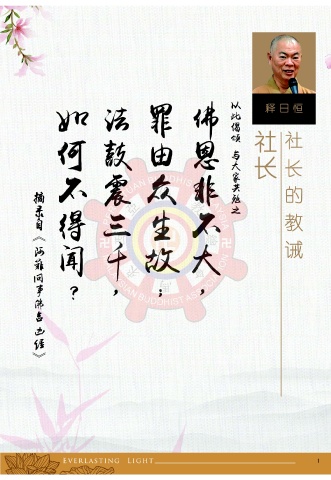 释日恒
社长的教诫
社长
以此偈颂 与大家共勉之
佛恩非不大，
罪由众生故；
法鼓震三千，
如何不得闻？
摘录自《阿难问事佛吉凶经》
BUDDHIST ASSOCIATION
EVERLASTING LIGHT
1